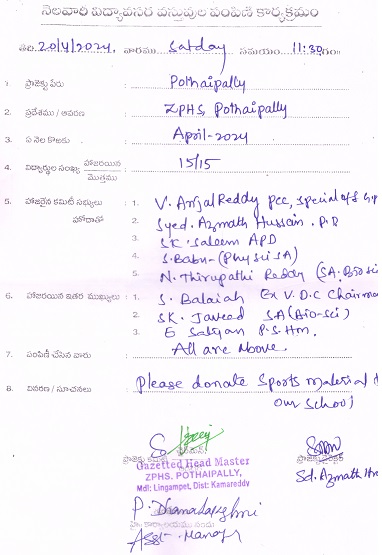 నెలవారి విద్యావసర వస్తువుల పంపిణీ కార్యక్రమం
తేది. 20/4/2024, వారము Satday సమయం 11:30గం॥
1. ప్రాజెక్టు పేరు : Pothaipally
2. ప్రదేశము / ఆవరణ : ZPHS, Pothaipally
3. ఏ నెల కొరకు : April-2024
4. విద్యార్థుల సంఖ్య హాజరయిన / మొత్తము : 15/15
5. హాజరైన కమిటీ సభ్యులు : 1. V. Anjal Reddy pcc, special off
హోదాతో 2. Syed. Azmath Hussain. P.D
3. SK. Saleem APD
4. S. Babu - (Phy sci SA)
5. N. Thirupathi Reddy (SA. Bio sci
6. హాజరయిన ఇతర ముఖ్యులు : 1. S. Balaiah Ex V.D.C Chairma
2. SK. Javeed SA (Bio-sci)
3. E Satyan P.S. Hm.
7. పంపిణీ చేసిన వారు : All are Above.
8. వివరణ / సూచనలు : Please donate Sports material
our School
Gazetted Head Master
ZPHS. POTHAIPALLY,
Mdl: Lingampet, Dist: Kamareddy
Sd. Azmath
P. Dhanalaxmi
Asst. Manag